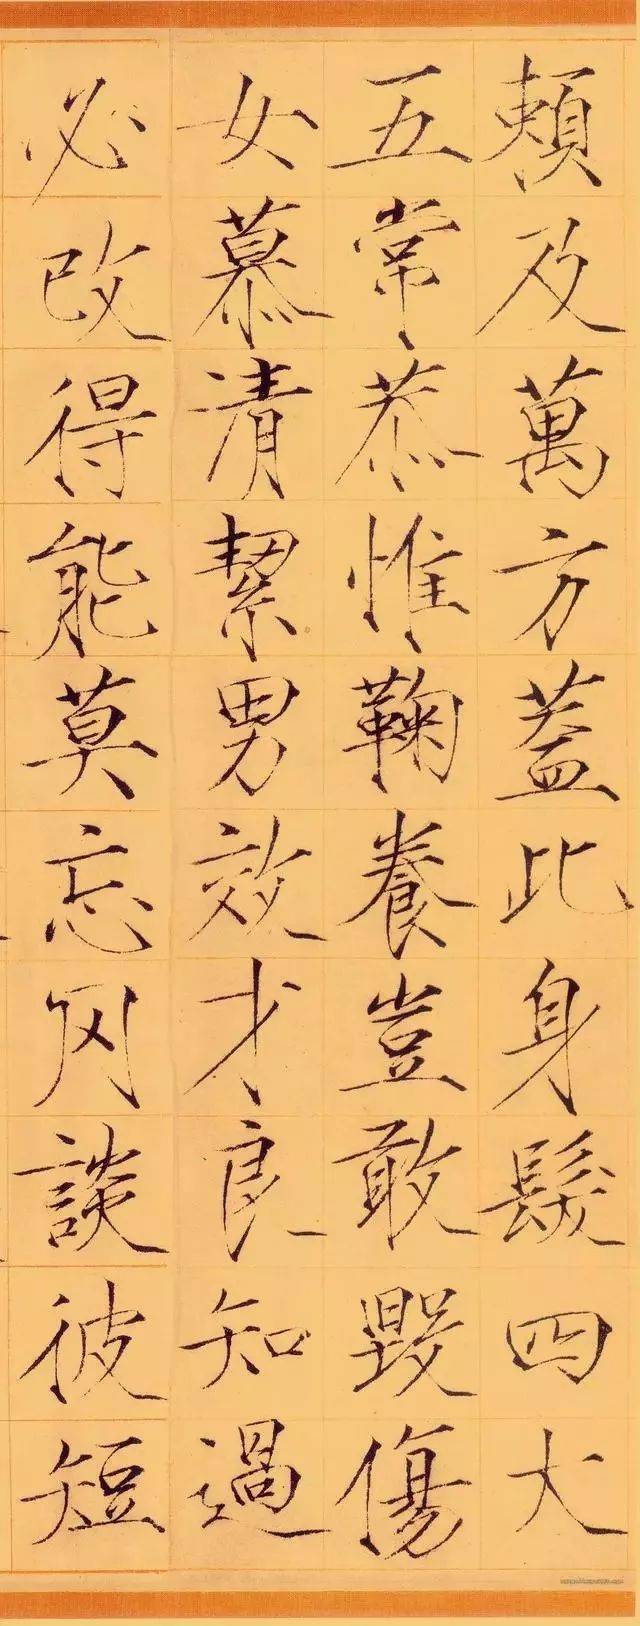 頼及萬方蓋此身髮四大
五常恭惟鞠養豈敢毀傷
女慕清絜男效才良知過
必改得能莫忘罔談彼短